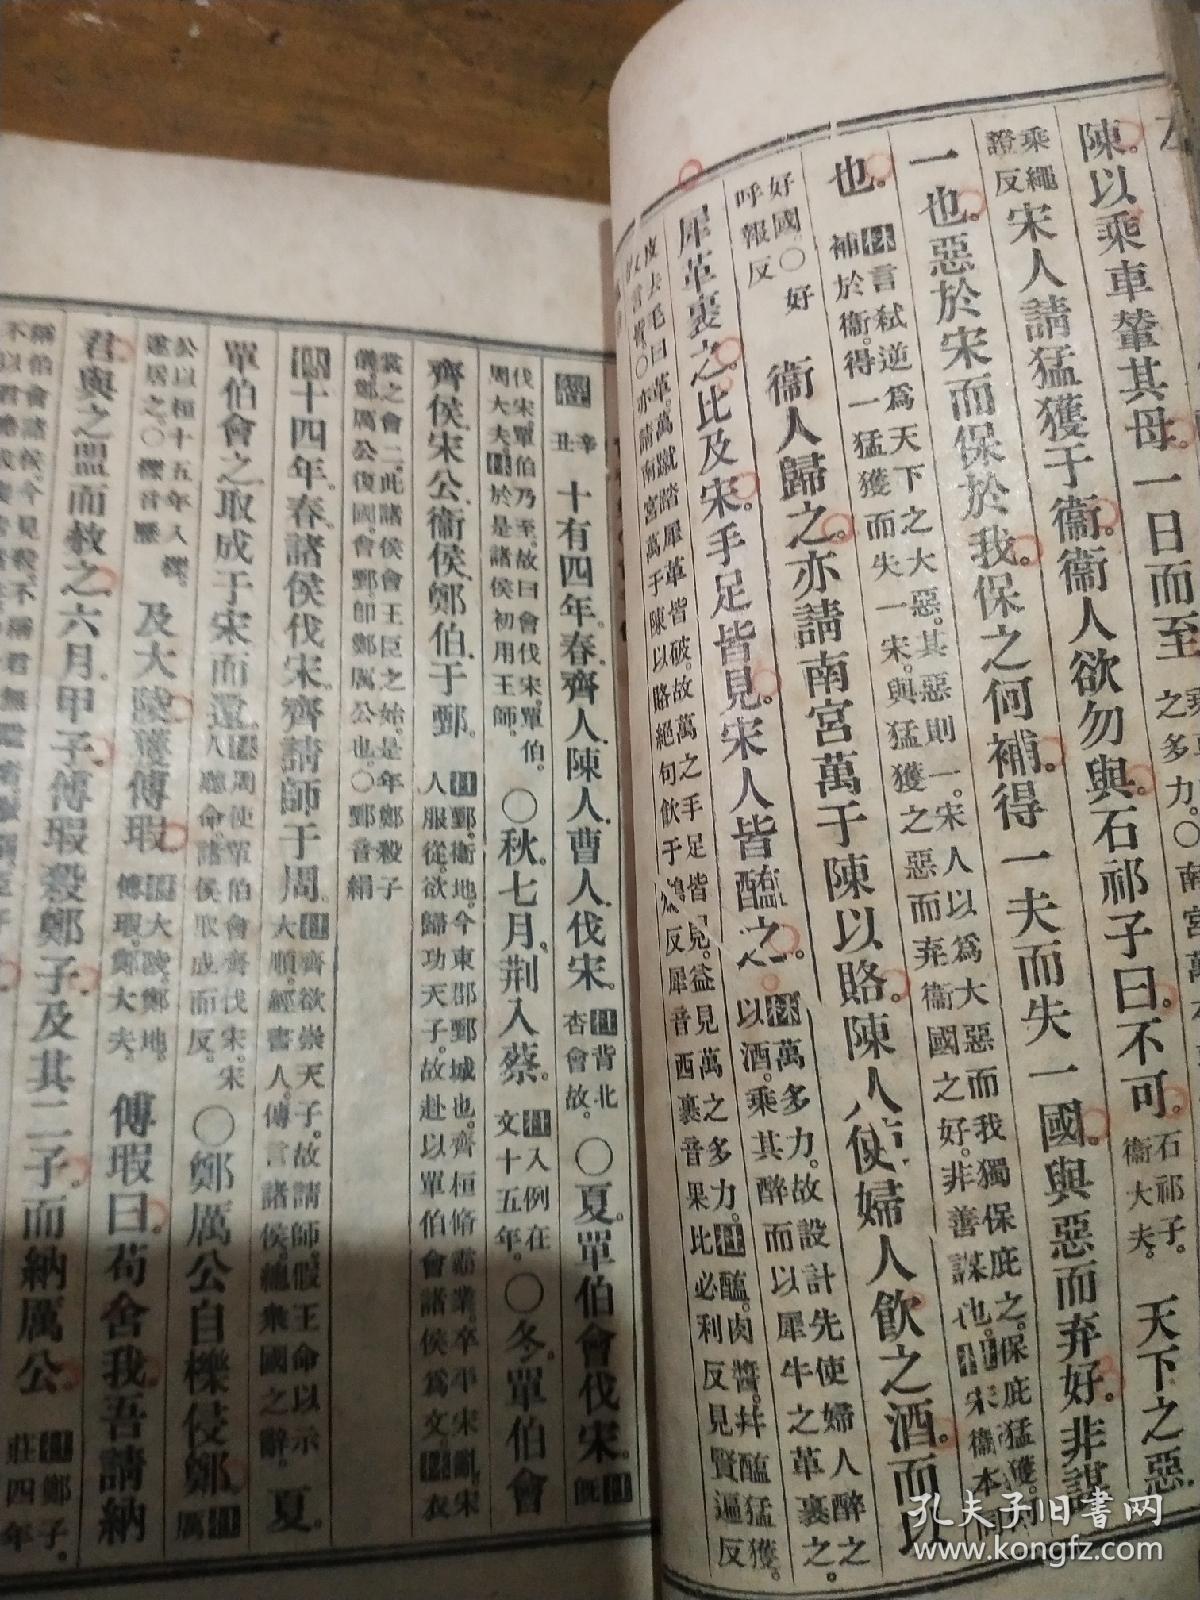 陳。以乘車輦其母。一日而至
之多力。〇南宮萬
乘繩證反
宋人請猛獲于衞。衞人欲勿與。石祁子曰。不可。
石祁子。衞大夫。
天下之惡
一也。惡於宋而保於我。保之何補。得一夫而失一國。與惡而弃好。非謀
也。
林言弒逆爲天下之大惡。其惡則一。宋人以爲大惡而我獨保庇之。保庇猛獲。何
補於衞。得一猛獲而失一宋。與猛獲之惡而弃衞國之好。非善謀也。
宋衞本同
好國。〇好呼報反
衞人歸之。亦請南宮萬于陳以賂。陳人使婦人飲之酒。而以
犀革裹之。比及宋。手足皆見。宋人皆醢之。
林萬多力。故設計先使婦人醉之
以酒。乘其醉而以犀牛之革裹之。
皮去毛曰革。萬蹴踏犀革皆破。故萬之手足皆見。益見萬之多力。杜醢。肉醬。幷醢猛獲。
〇亦請南宮萬于陳以賂絕句飲于鴆反犀音西裹音果比必利反見賢遍反
經
辛丑
十有四年。春。齊人陳人曹人伐宋。
杜背北杏會故。
〇夏。單伯會伐宋。
杜旣
伐宋。單伯乃至。故曰會伐宋。單伯。周大夫。
於是諸侯初用王師。
〇秋。七月。荆入蔡。
杜入例在文十五年。
〇冬。單伯會
齊侯宋公衞侯鄭伯于鄄。
杜鄄。衞地。今東郡鄄城也。齊桓脩霸業。卒平宋亂。宋
人服從。欲歸功天子。故赴以單伯會諸侯爲文。
衣
裳之會二。此諸侯會王臣之始。是年鄭殺子
儀鄭厲公復國。會鄄。卽鄭厲公也。〇鄄音絹
十四年。春。諸侯伐宋。齊請師于周。
杜齊欲崇天子。故請師。假王命以示
大順。經書人。傳言諸侯。總衆國之辭。
夏。
單伯會之。取成于宋而還。
周使單伯會齊伐宋。宋
人聽命。諸侯取成而反。
〇鄭厲公自櫟侵鄭。
杜厲
公以桓十五年入櫟。
遂居之。〇櫟音歷
及大陵。獲傅瑕。
杜大陵。鄭地。
傅瑕。鄭大夫。
傅瑕曰。苟舍我。吾請納
君。與之盟而赦之。六月。甲子。傅瑕殺鄭子及其二子而納厲公。
杜鄭子。
莊四年。
稱伯會諸侯。今見殺。不稱君。無
孔夫子旧书网
www.kongfz.com